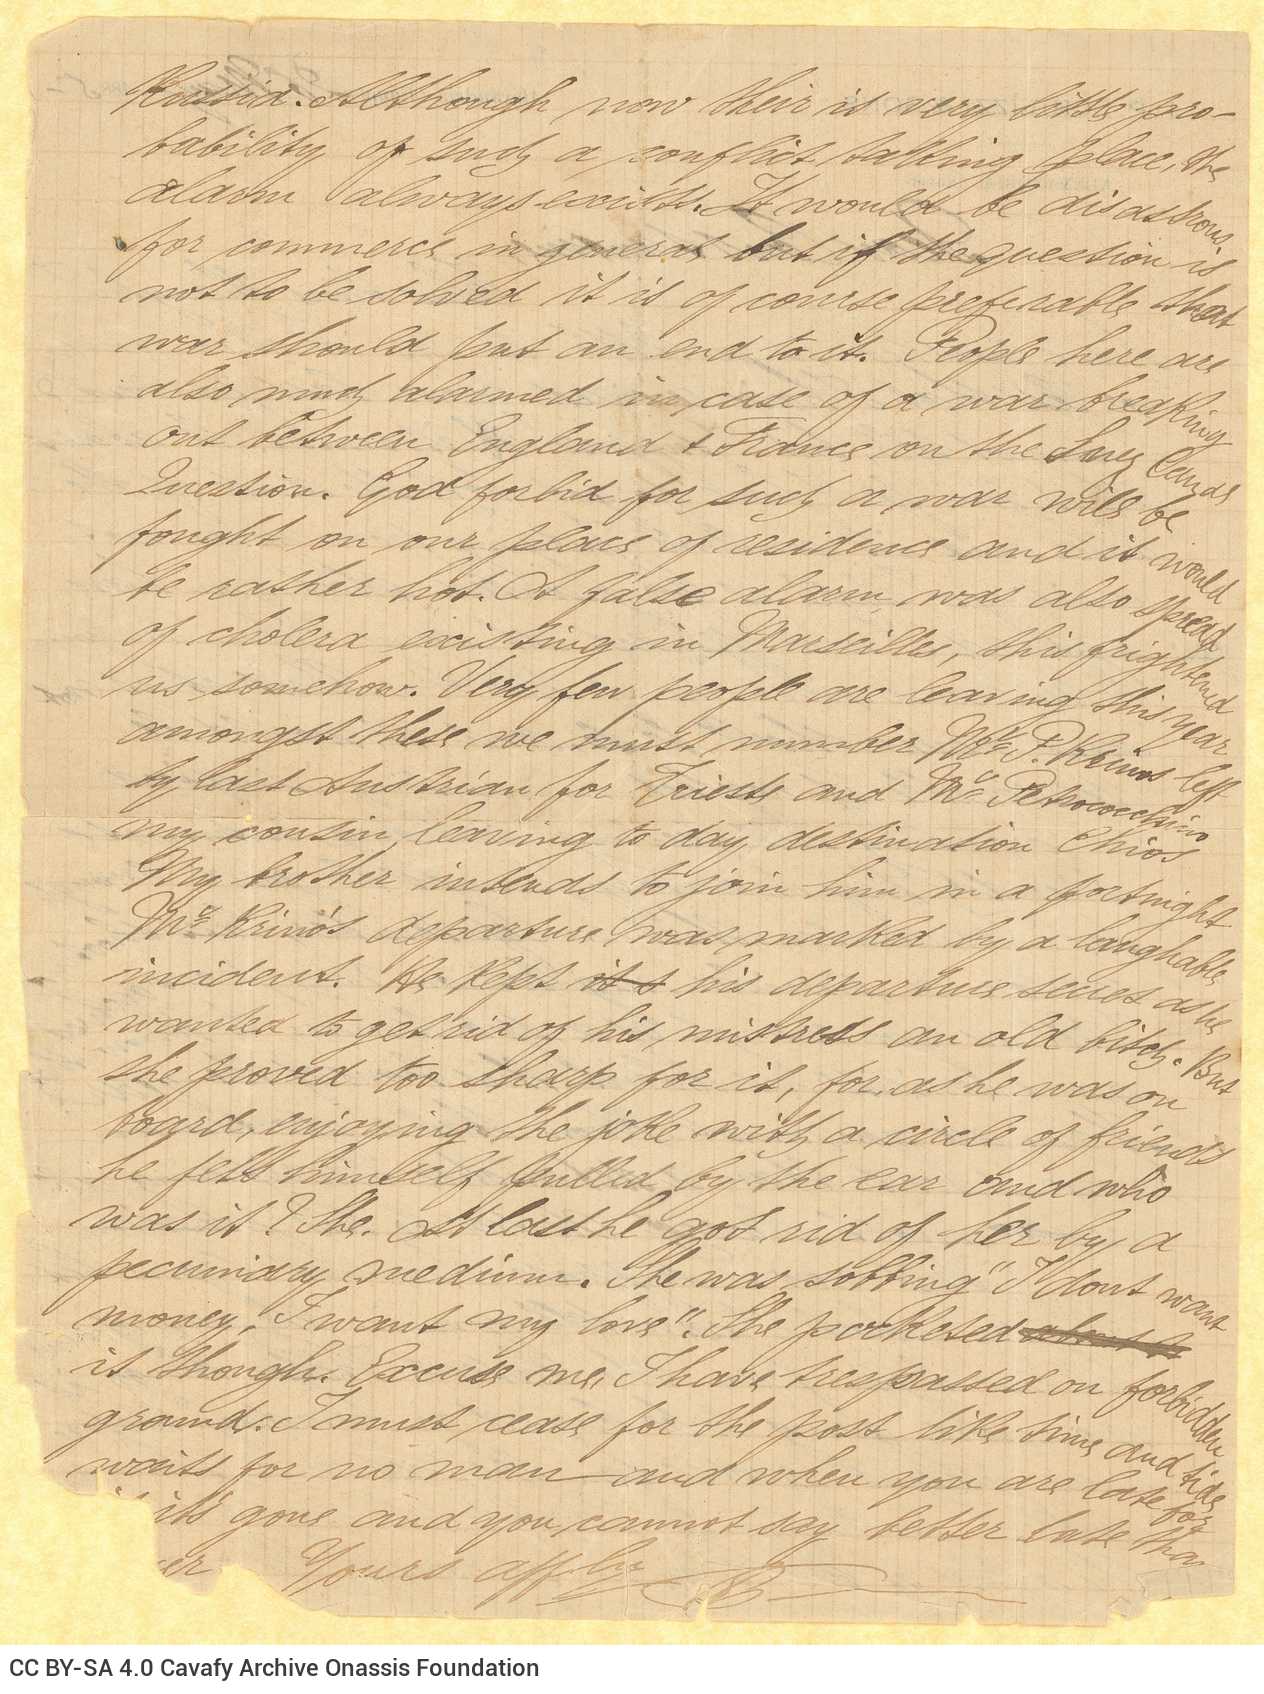 Russia. Although now their is very little pro-
bability of such a conflict talking place, the
alarm always exists. It would be disastrous
for commerce in general but if the question is
not to be solved it is of course preferable that
war should put an end to it. People here are
also much alarmed in case of a war breaking
out between England & France on the Suez Canal
Question. God forbid for such a war will be
fought on our place of residence and it would
be rather hot. A false alarm was also spread
of cholera existing in Marseilles, this frightend
us somehow. Very few people are leaving this year
amongst these we must number Mr P. Krinos left
by last Austrian for Trieste and Mr Petrococchino
my cousin leaving to day destination Chios
My brother intends to join him in a fortnight
Mr Krino's departure was marked by a laughable
incident. He kept its his departure secret as he
wanted to get rid of his mistress an old bitch. But
she proved too sharp for it, for as he was on
board, enjoying the joke with a circle of friends
he felt himself pulled by the ear and who
was it? She. At last he got rid of her by a
pecuniary medium. She was sobbing "I dont want
money, I want my love". She pocketed
it though. Excuse me, I have trespassed on forbidden
ground. I must cease for the post like time and tide
waits for no man and when you are late for
it its gone and you cannot say better late than
ver Yours affly
CC BY-SA 4.0 Cavafy Archive Onassis Foundation